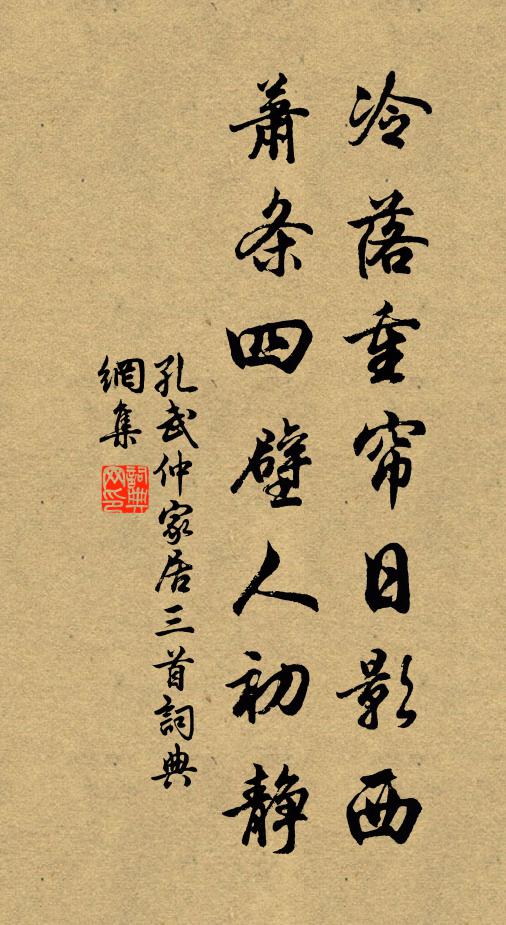 冷落重帘日影西
萧条四壁人初静
孔武仲家居三首詞典
網集
詞典
网印